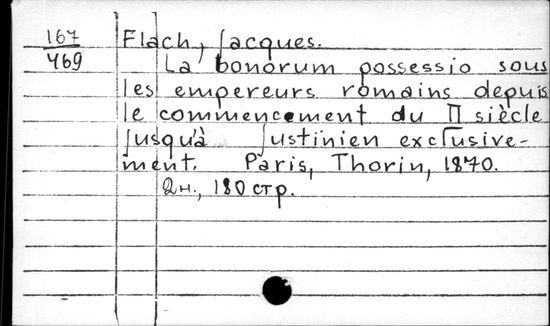 167 Flach, Jacques.
469 La bonorum possessio sous
les empereurs romains depuis
le commencement du II siècle
jusqu'à Justinien exclusive-
ment. Paris, Thorin, 1870.
2н., 180 стр.